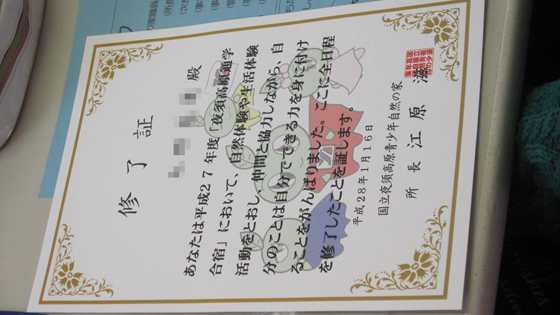 修了証
殿
あなたは平成27年度「夜須高原通学
合宿」において、自然体験や生活体験
活動をとおし、仲間と協力しながら、自
分のことは自分でできる力を身に付け
ることをがんばりました。ここに全日程
を修了したことを証します。
平成28年1月16日
国立夜須高原青少年自然の家
所長 江原 滋